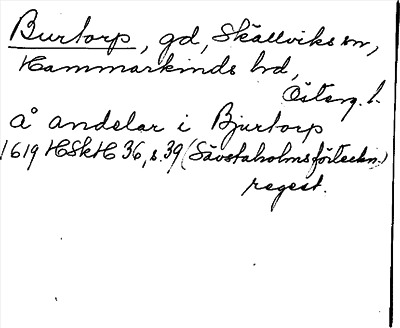 Burtorp, gd, Skällviks sn,
Hammarkinds hd,
Österg. l.
å andelar i Bjurtorp
1619 HSkH 36, s. 39 (Sävstaholmsförteckn.)
regest.